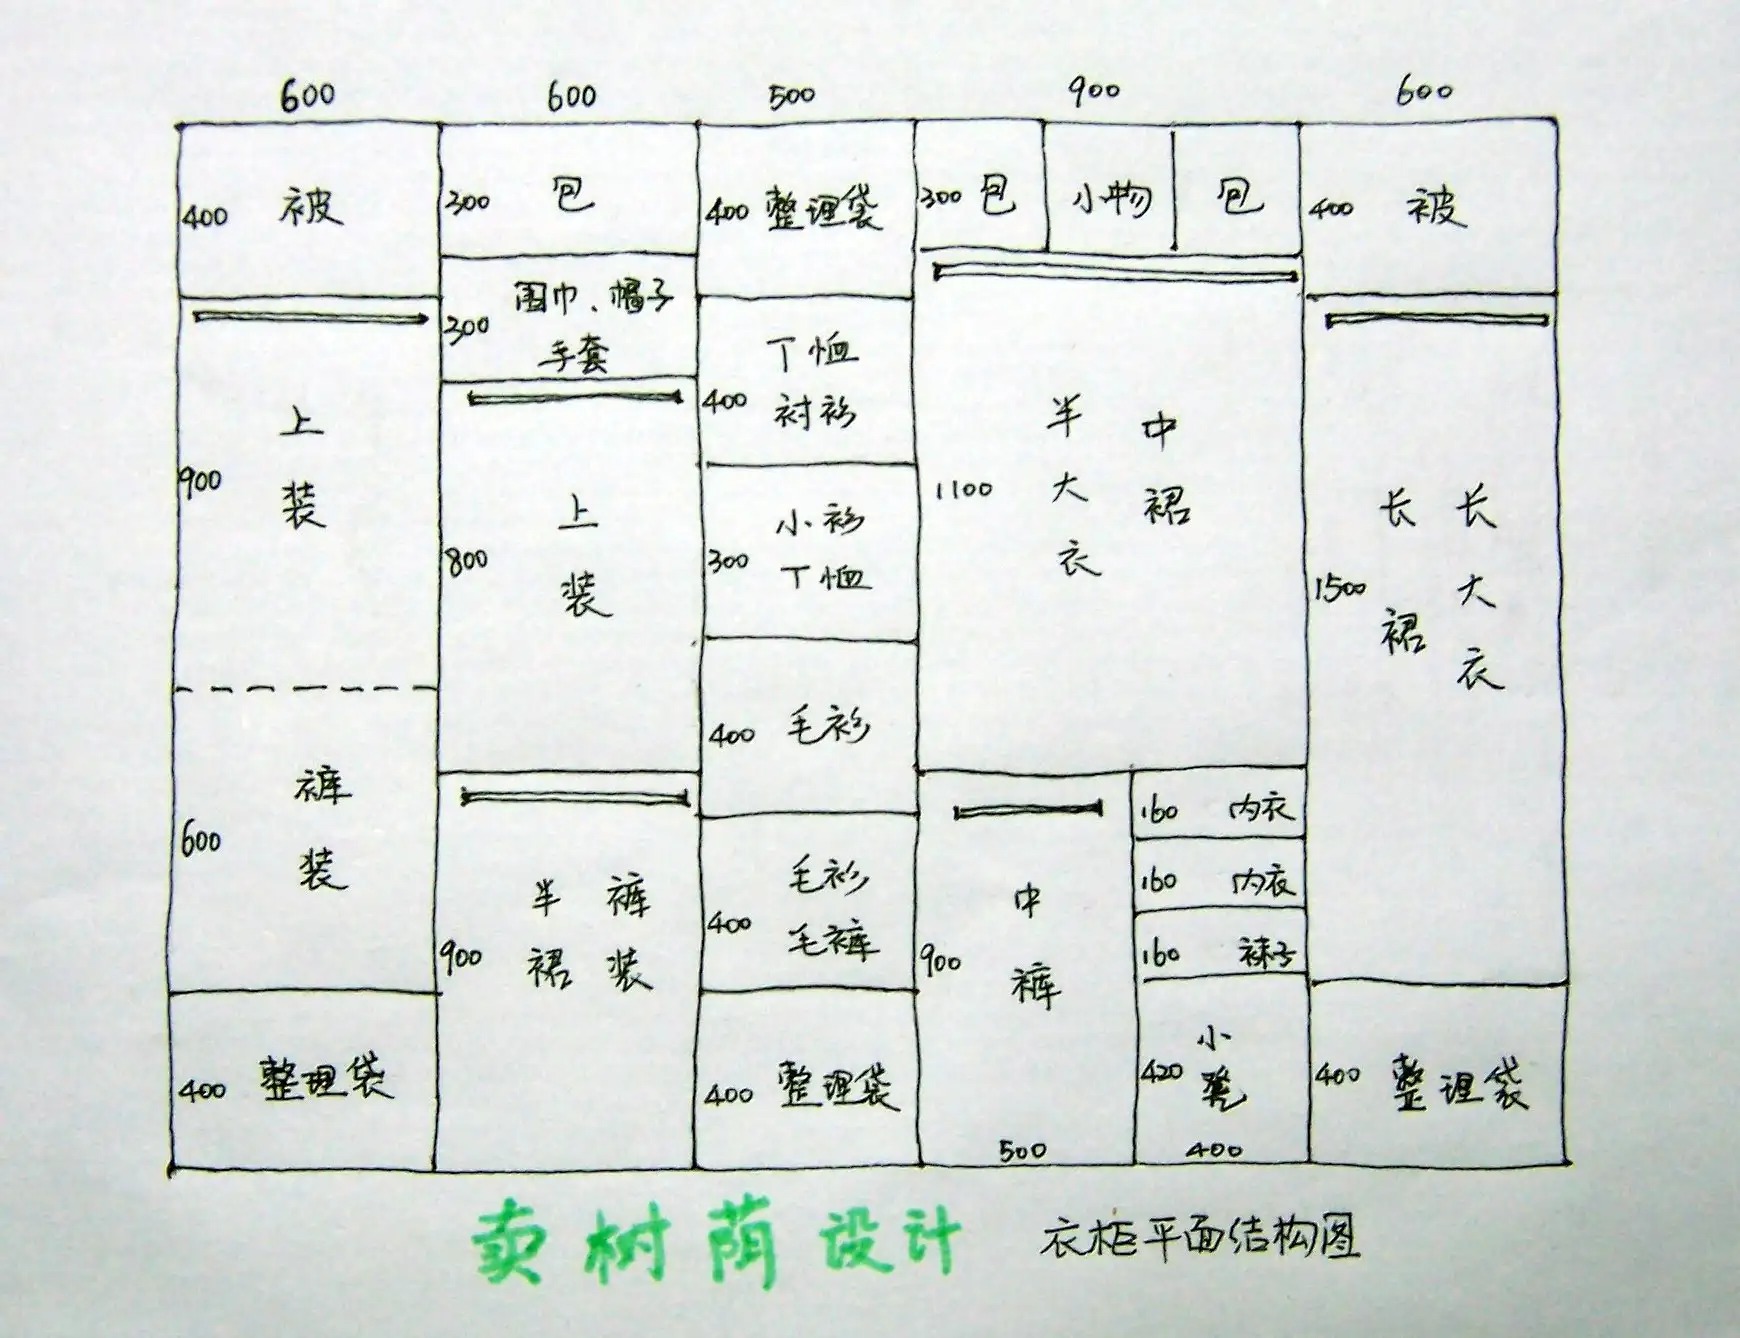 600 600 500 900 600
400 被
900 上装
600 裤装
400 整理袋
300 包
300 围巾、帽子
手套
800 上装
900 半裙 裤装
400 整理袋
400 T恤
衬衫
300 小衫
T恤
400 毛衫
400 毛衫
毛裤
400 整理袋
300 包 小物 包
1100 半大衣 中裙
900 中裤
500
160 内衣
160 内衣
160 袜子
420 小凳
400
400 被
1500 长裙 长大衣
400 整理袋
卖树荫设计 衣柜平面结构图